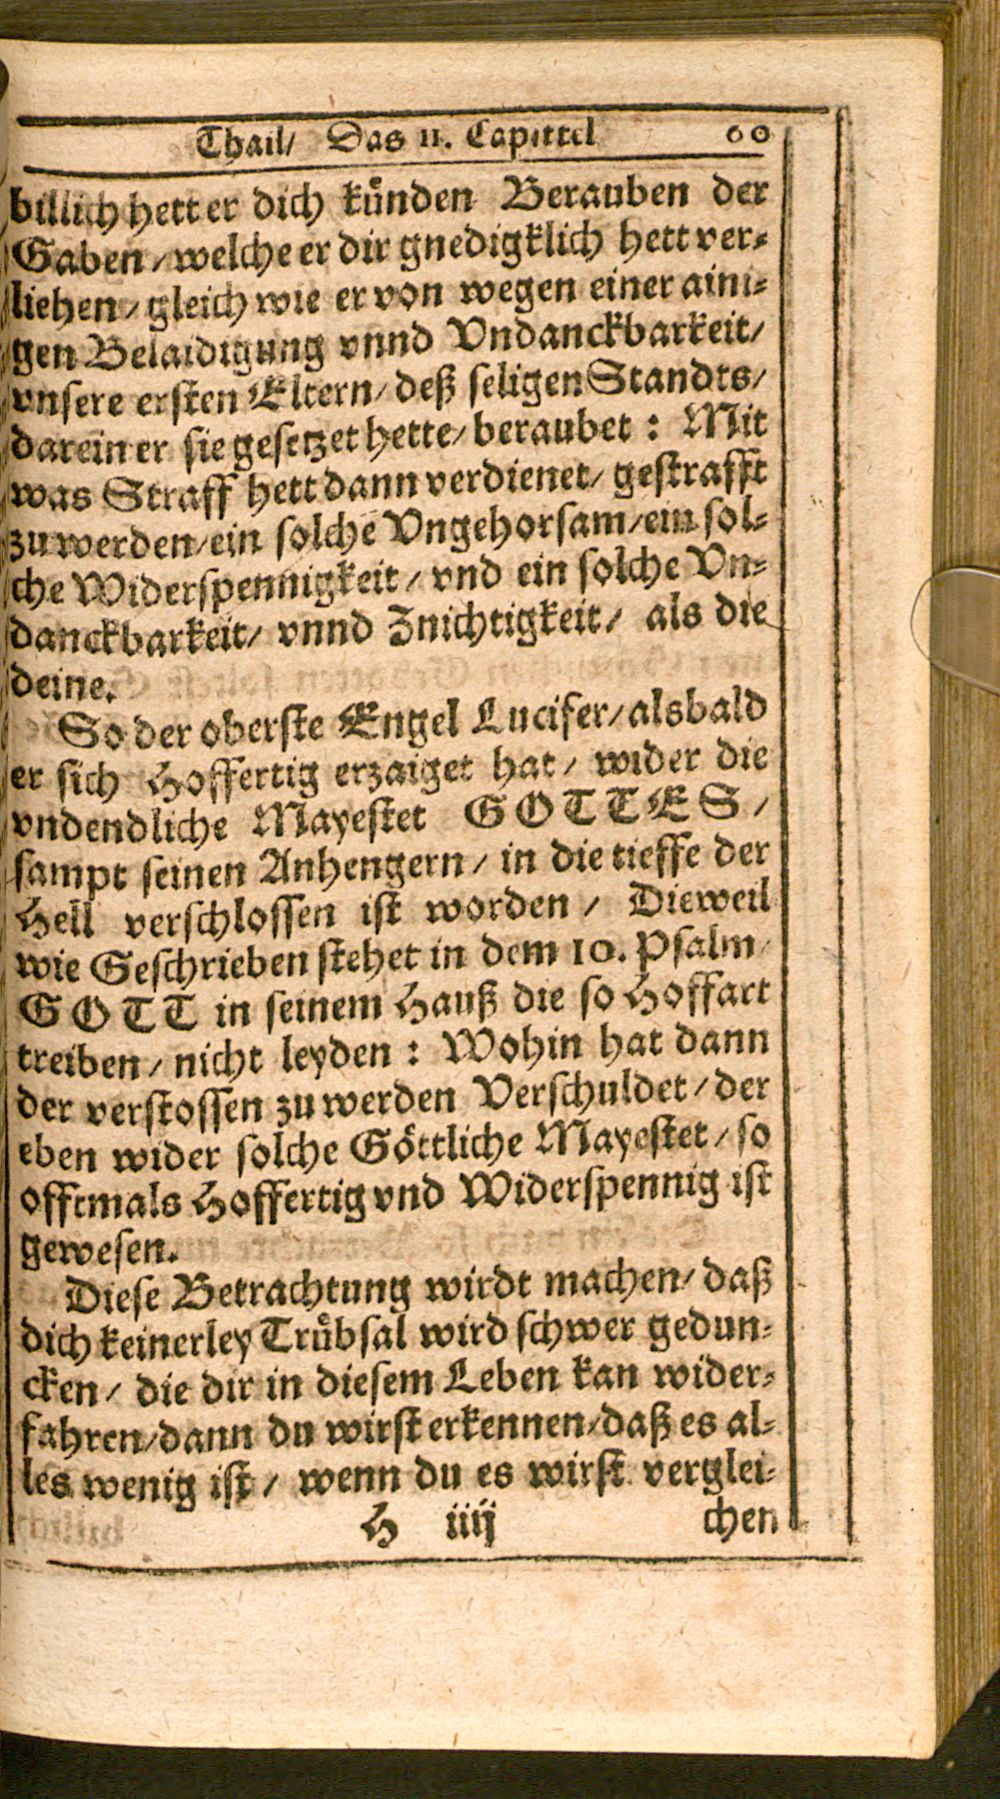 Thail/ Das 11. Capittel 60
billich hett er dich kuͤnden Berauben der
Gaben / welche er dir gnedigklich hett ver⸗
liehen / gleich wie er von wegen einer aini⸗
gen Belaidigung vnnd Vndanckbarkeit/
vnsere ersten Eltern/ deß seligen Standts/
darein er sie gesetzet hette/ beraubet : Mit
was Straff hett dann verdienet/ gestrafft
zu werden/ ein solche Vngehorsam/ ein sol⸗
che Widerspennigkeit / vnd ein solche Vn⸗
danckbarkeit/ vnnd Znichtigkeit/ als die
deine.
So der oberste Engel Lucifer/ alsbald
er sich Hoffertig erzaiget hat / wider die
vndendliche Mayestet GOTTES /
sampt seinen Anhengern / in die tieffe der
Hell verschlossen ist worden / Dieweil
wie Geschrieben stehet in dem 10. Psalm/
GOTT in seinem Hauß die so Hoffart
treiben / nicht leyden : Wohin hat dann
der verstossen zu werden Verschuldet / der
eben wider solche Goͤttliche Mayestet / so
offtmals Hoffertig vnd Widerspennig ist
gewesen.
Diese Betrachtung wirdt machen/ daß
dich keinerley Truͤbsal wird schwer gedun⸗
cken / die dir in diesem Leben kan wider⸗
fahren/ dann du wirst erkennen/ daß es al⸗
les wenig ist / wenn du es wirst verglei⸗
H iiij chen